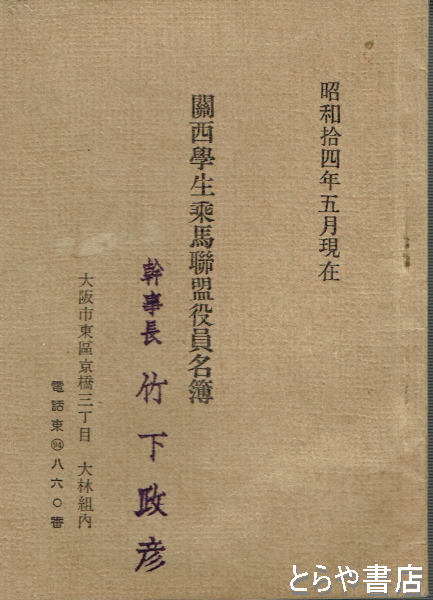 昭和拾四年五月現在
關西學生乘馬聯盟役員名簿
幹事長 竹下政彦
大阪市東區京橋三丁目 大林組内
電話東㉔八六〇番
とらや書店